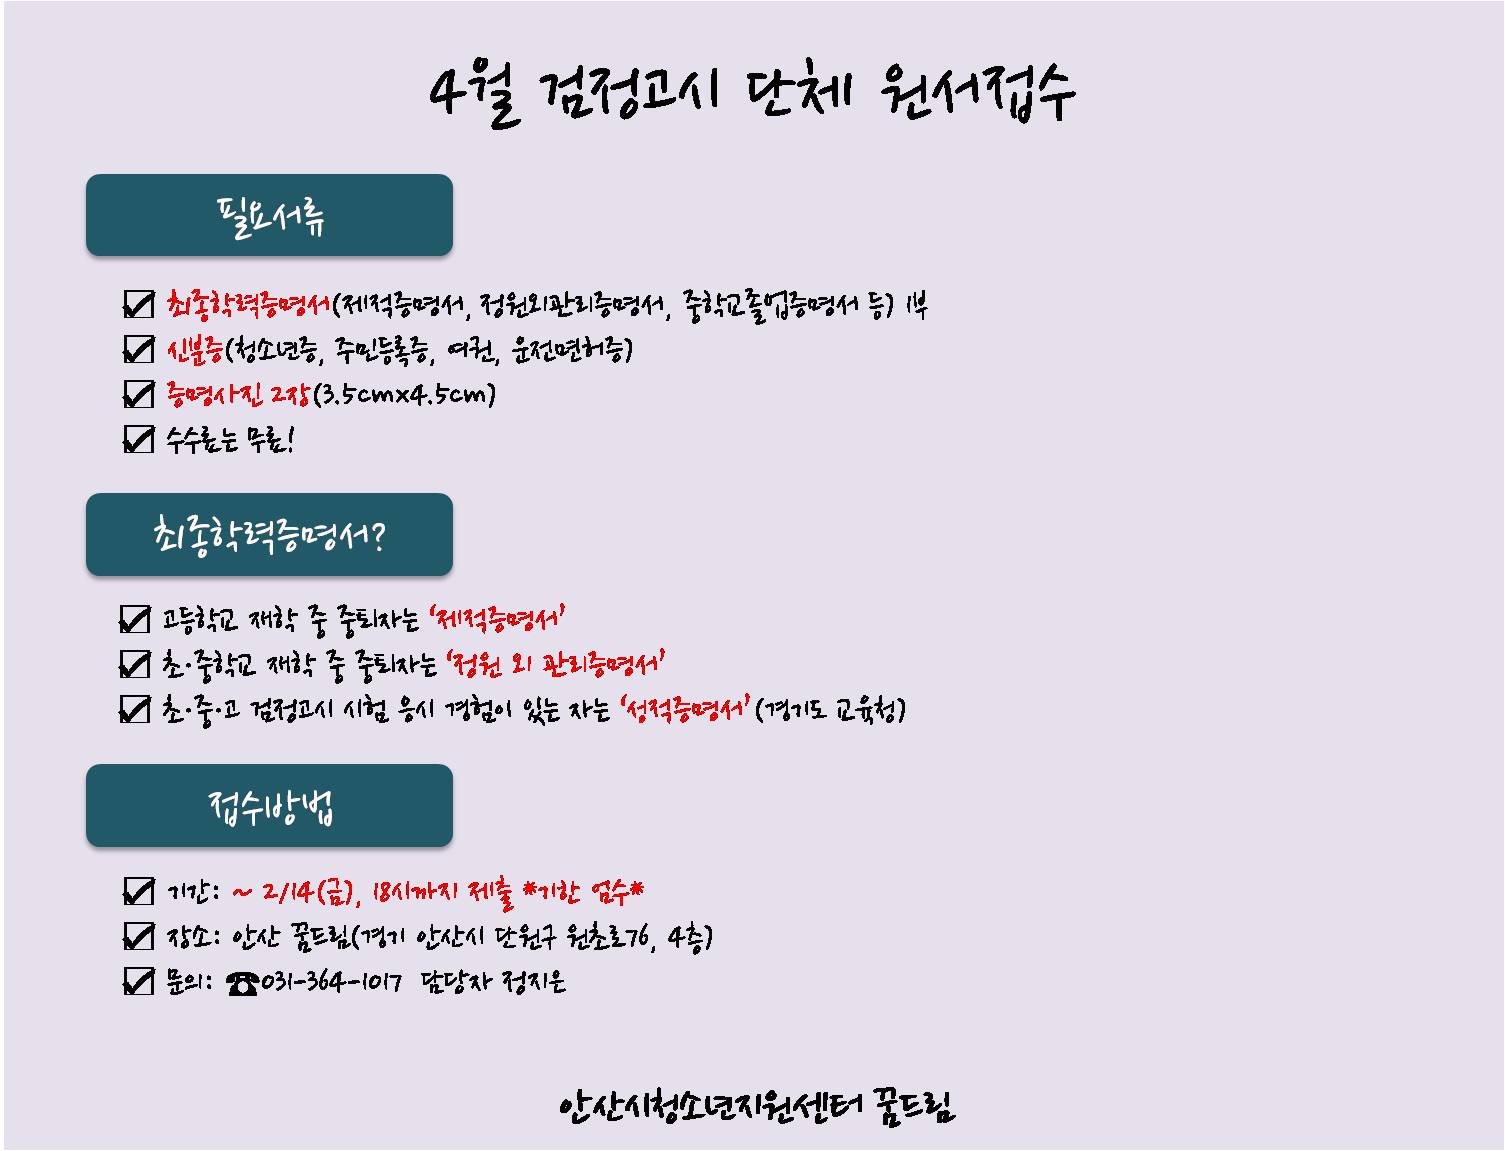 4월 검정고시 단체 원서접수
필요서류
최종학력증명서(제적증명서, 정원외관리증명서, 중학교졸업증명서 등) 1부
신분증(청소년증, 주민등록증, 여권, 운전면허증)
증명사진 2장(3.5cmx4.5cm)
수수료는 무료!
최종학력증명서?
고등학교 재학 중 중퇴자는 ‘제적증명서’
초·중학교 재학 중 중퇴자는 ‘정원 외 관리증명서’
초·중·고 검정고시 시험 응시 경험이 있는 자는 ‘성적증명서’ (경기도 교육청)
접수방법
기간: ~ 2/14(금), 18시까지 제출 *기한 엄수*
장소: 안산 꿈드림(경기 안산시 단원구 원초로76, 4층)
문의: ☎031-364-1017 담당자 정지은
안산시청소년지원센터 꿈드림